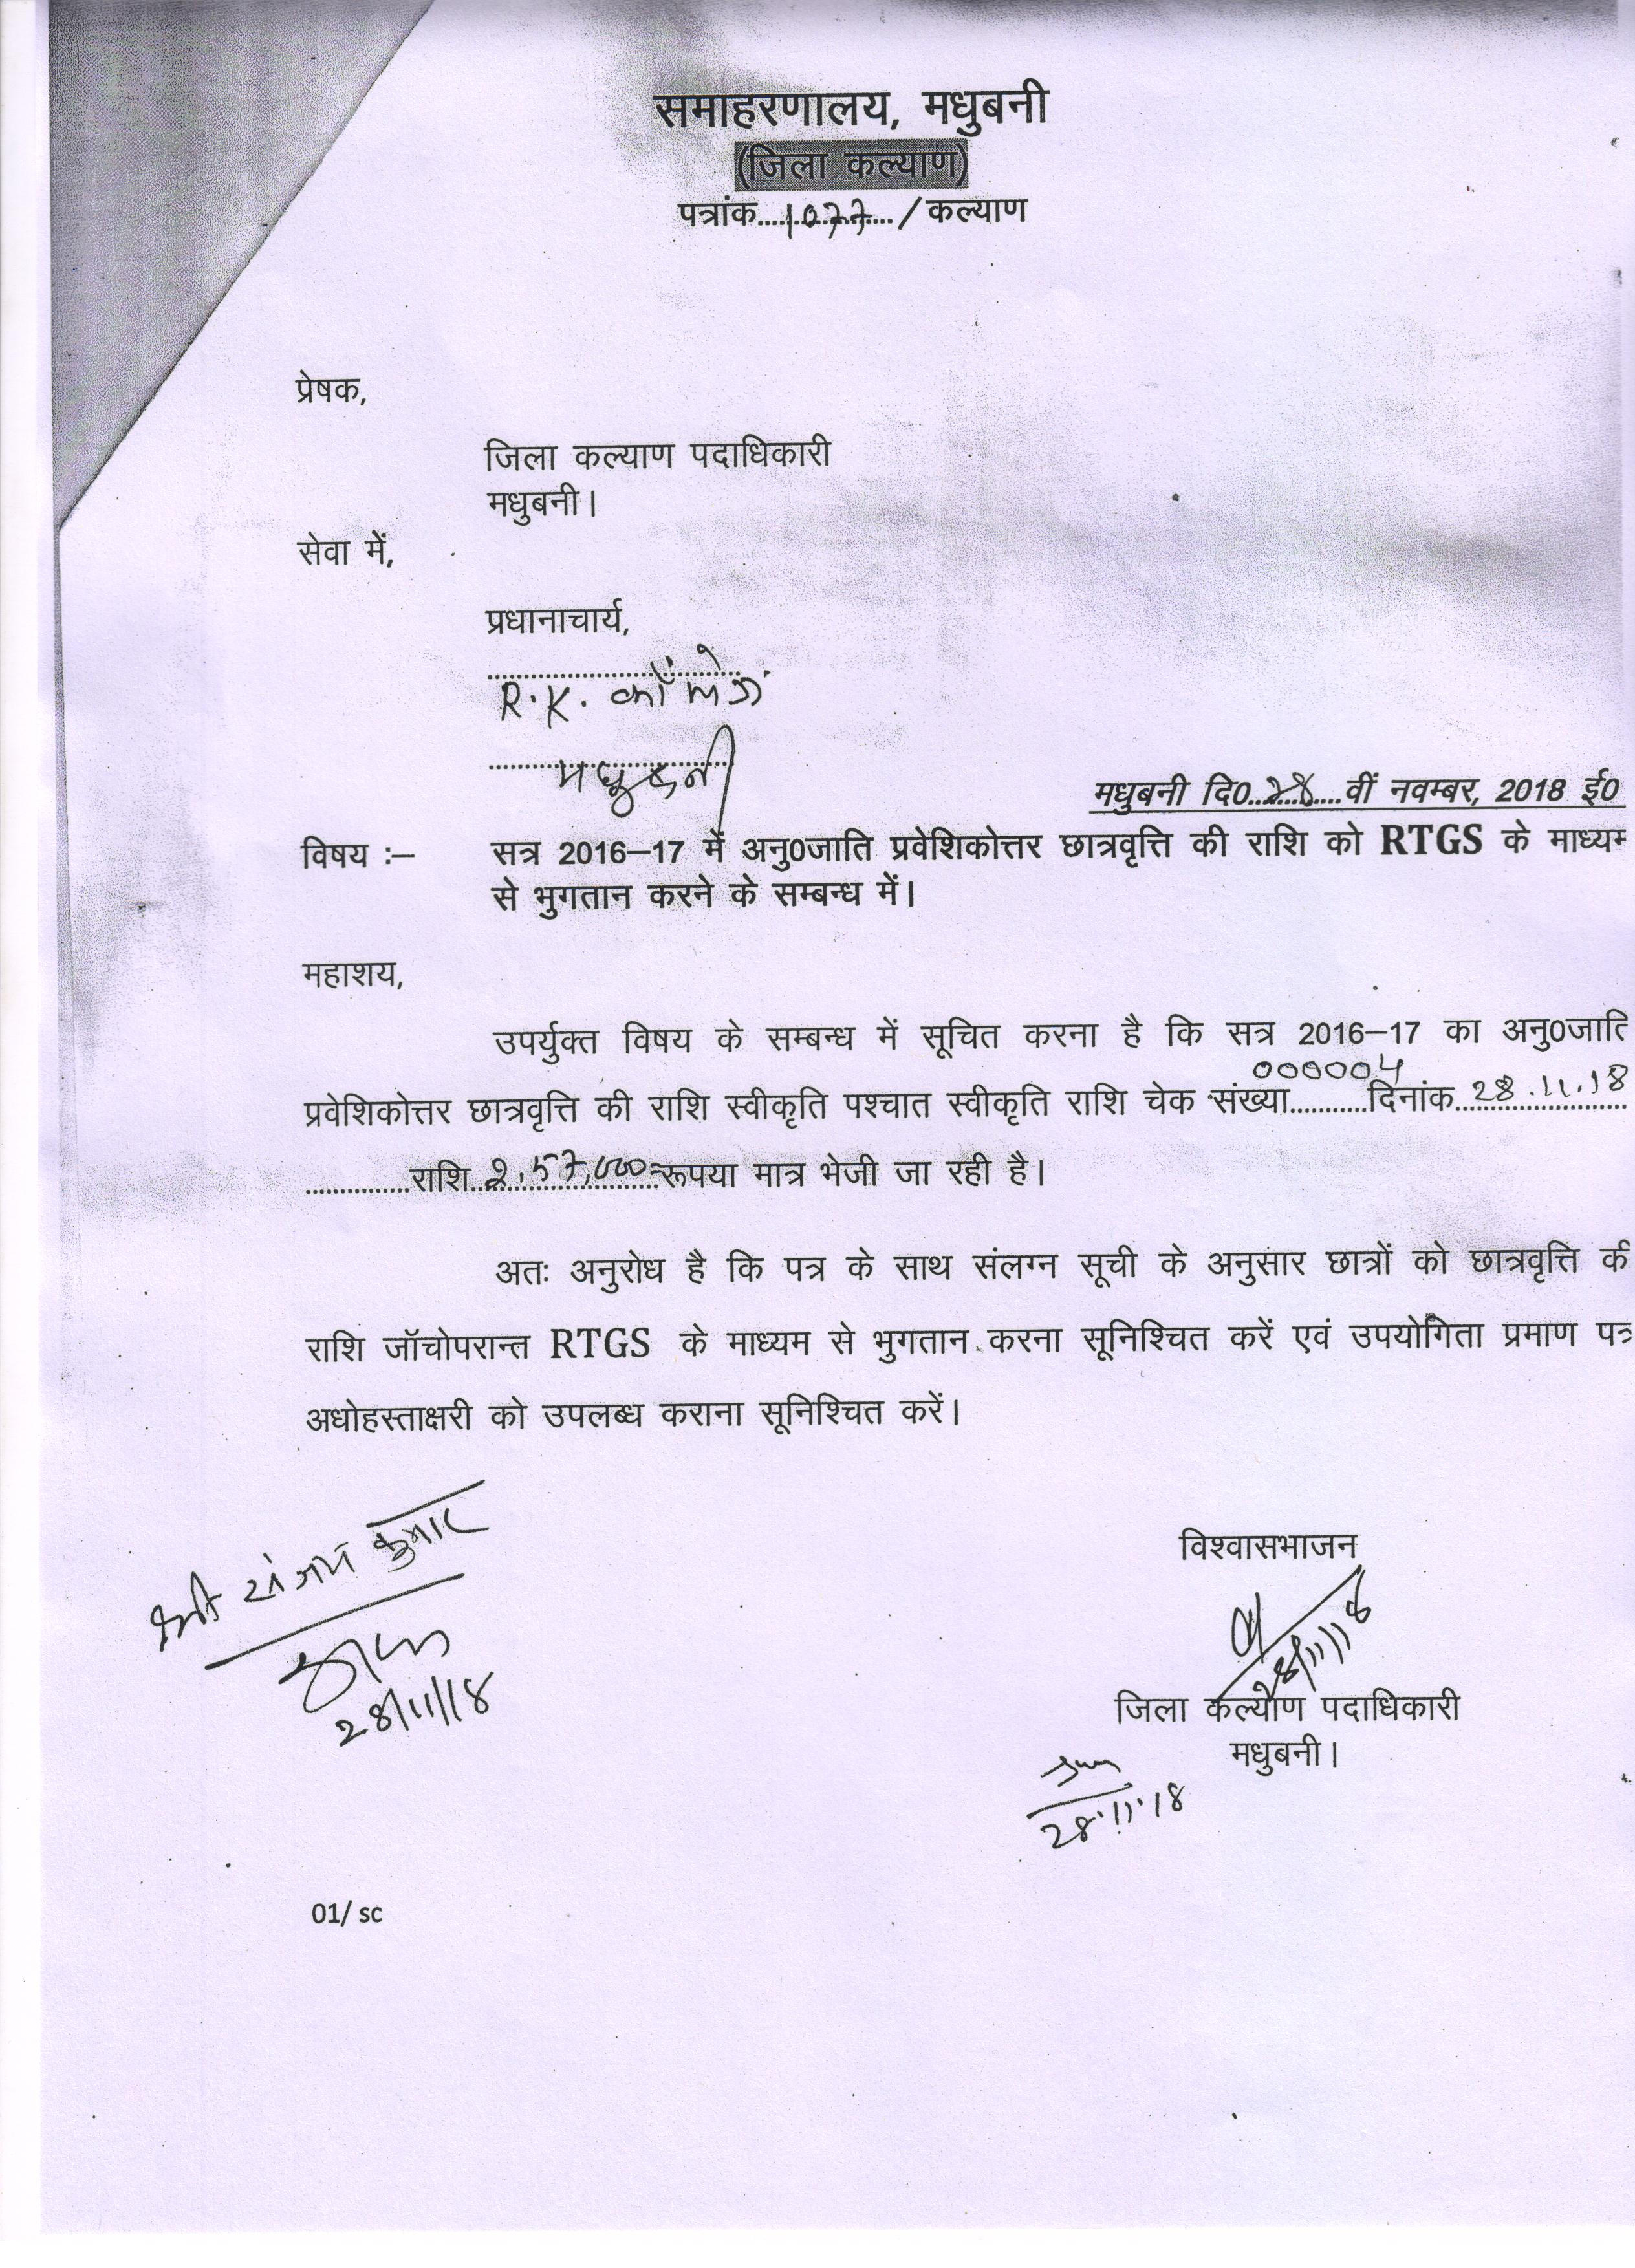 समाहरणालय, मधुबनी
(जिला कल्याण)
पत्रांक...1077.../कल्याण
प्रेषक,
जिला कल्याण पदाधिकारी
मधुबनी।
सेवा में,
प्रधानाचार्य,
R.K. कॉलेज
मधुबनी
मधुबनी दि0..28..वीं नवम्बर, 2018 ई0
विषय :– सत्र 2016–17 में अनु0जाति प्रवेशिकोत्तर छात्रवृत्ति की राशि को RTGS के माध्यम
से भुगतान करने के सम्बन्ध में।
महाशय,
उपर्युक्त विषय के सम्बन्ध में सूचित करना है कि सत्र 2016–17 का अनु0जाति
प्रवेशिकोत्तर छात्रवृत्ति की राशि स्वीकृति पश्चात स्वीकृति राशि चेक संख्या 000004 दिनांक 28.11.18
...............राशि 2,57,000=रूपया मात्र भेजी जा रही है।
अतः अनुरोध है कि पत्र के साथ संलग्न सूची के अनुसार छात्रों को छात्रवृत्ति की
राशि जॉचोपरान्त RTGS के माध्यम से भुगतान करना सूनिश्चित करें एवं उपयोगिता प्रमाण पत्र
अधोहस्ताक्षरी को उपलब्ध कराना सूनिश्चित करें।
श्री संजय कुमार
28/11/18
विश्वासभाजन
28/11/18
जिला कल्याण पदाधिकारी
मधुबनी।
28.11.18
01/ sc